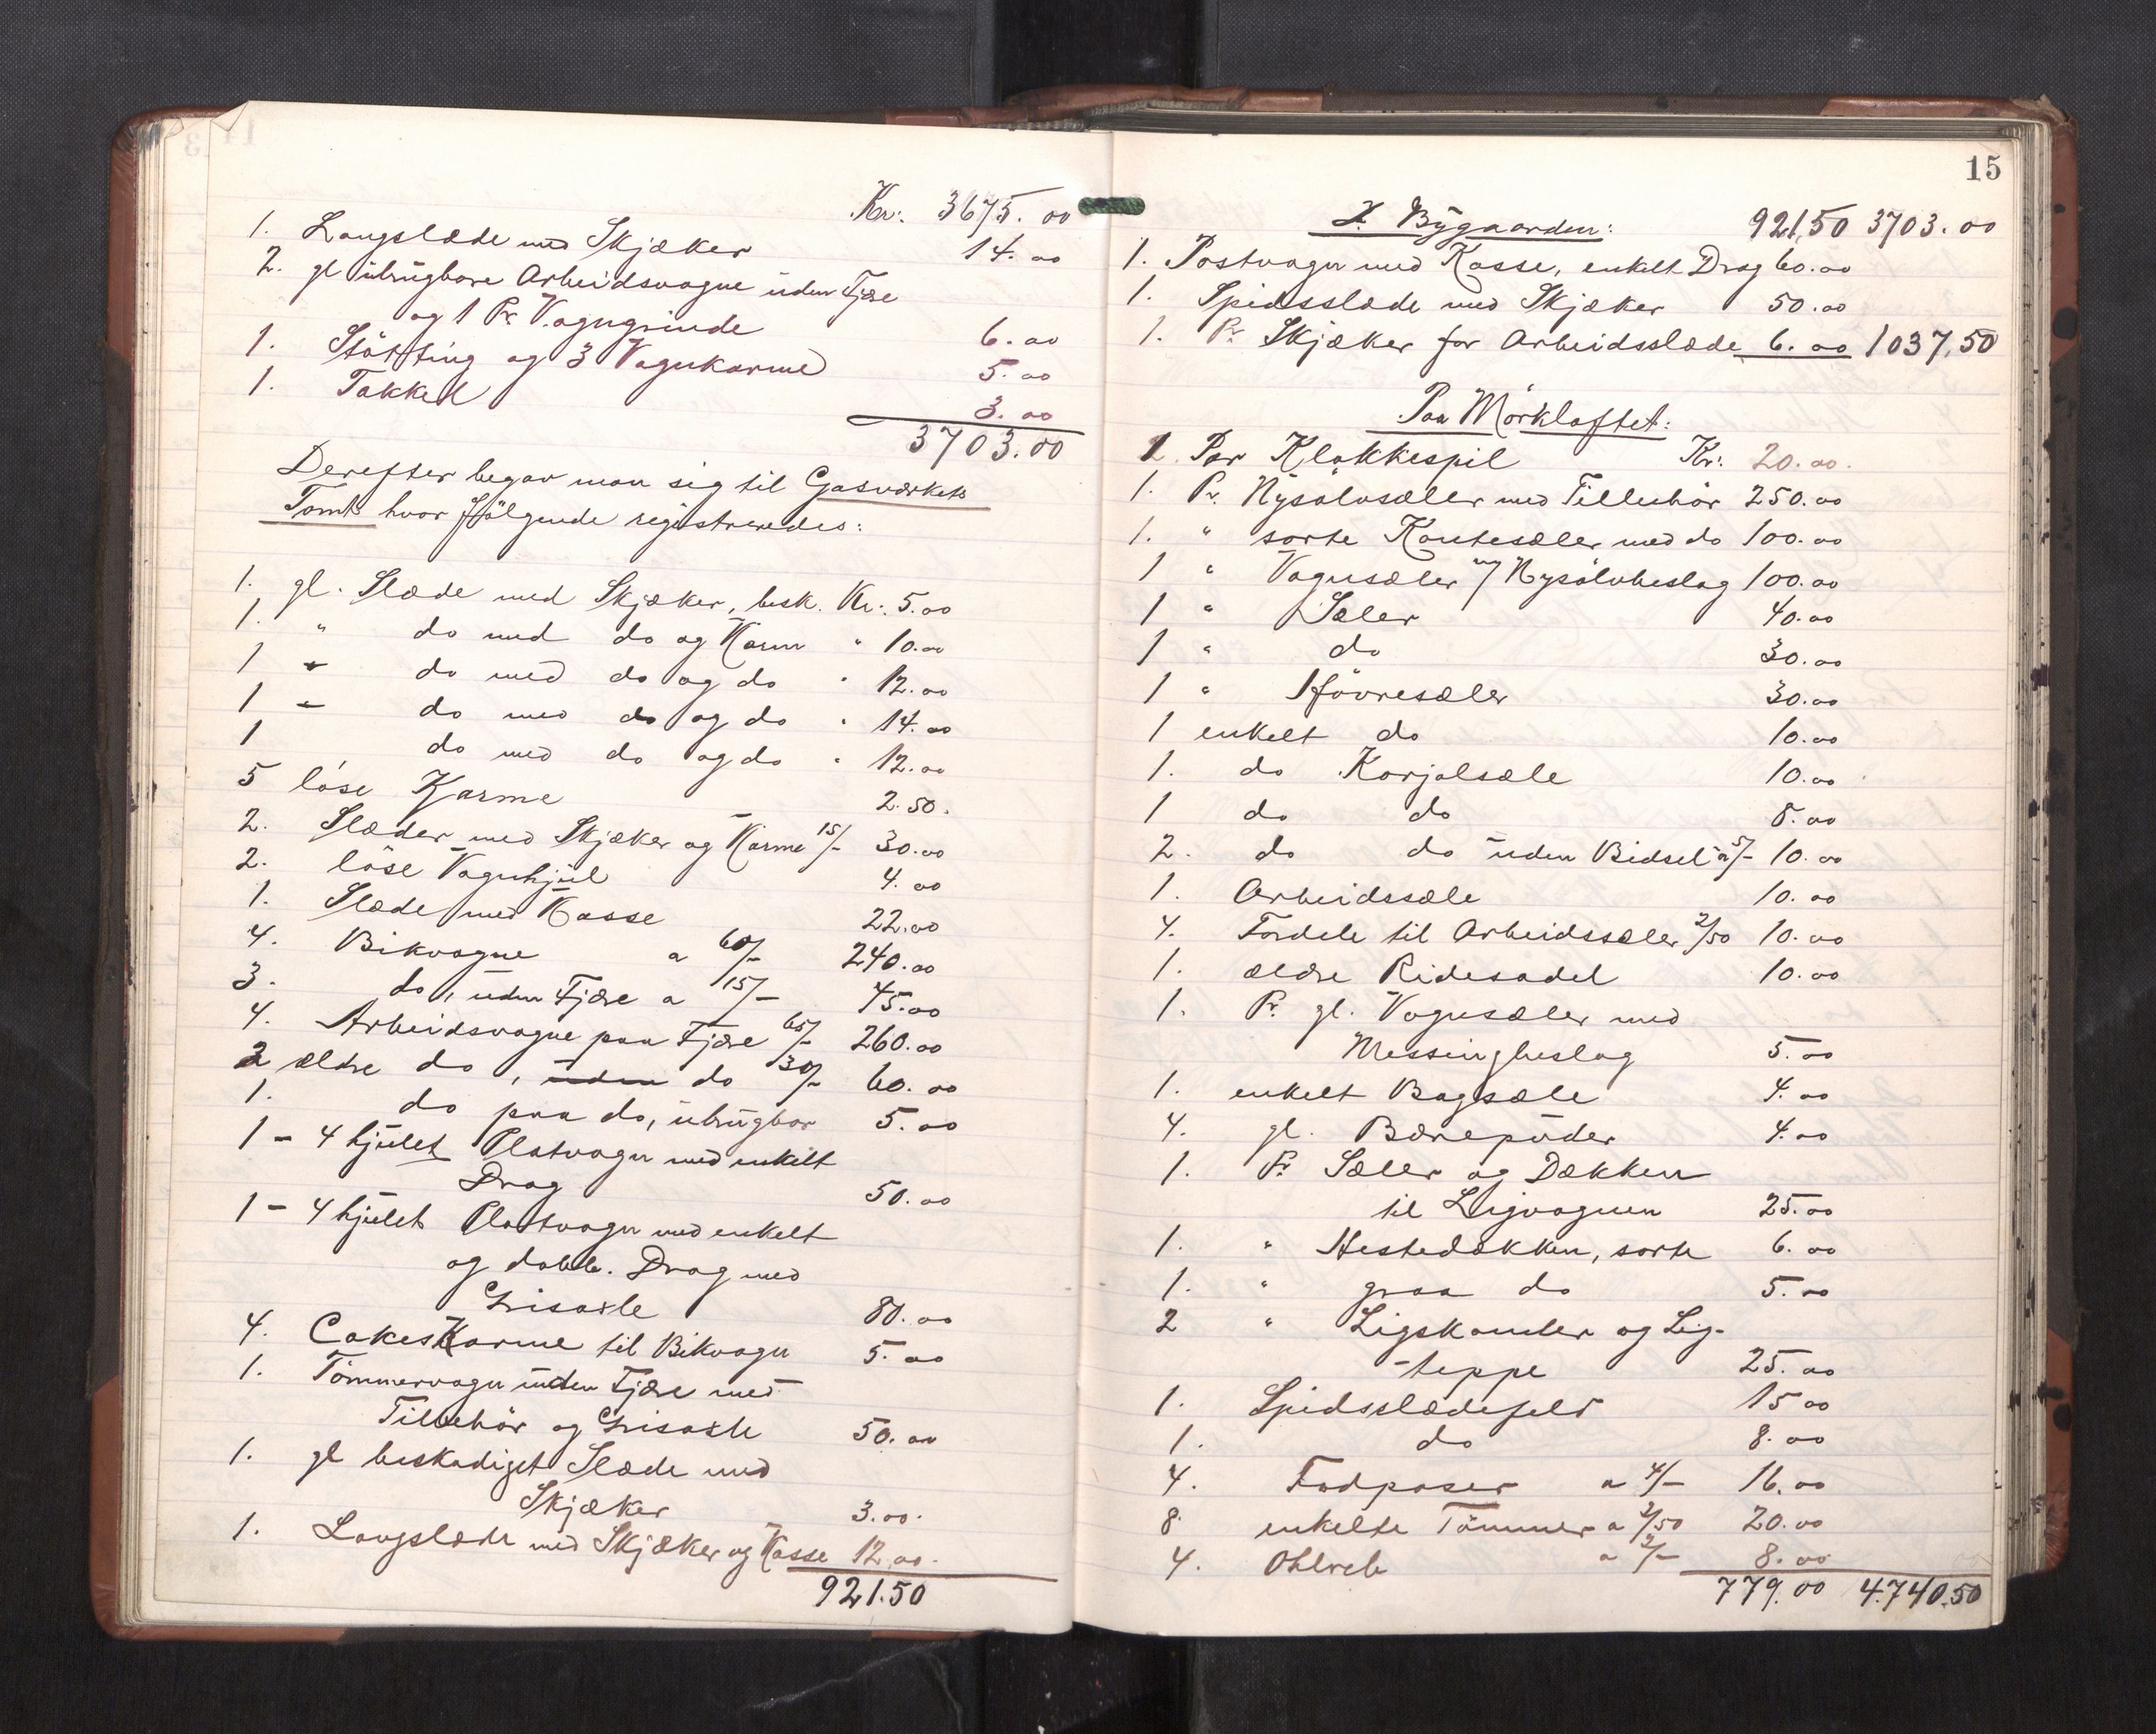 Kr. 3675.00
1. Langslæde med Skjæker 14.00
2. gl ubrugbare Arbeidsvogne uden Fjære
og 1 Pr. Vogngrinde 6.00
1. Stötting og 3 Vognkarme 5.00
1. Takkel 3.00
3703.00
Derefter begav man sig til Gasværkets
Tomt hvor fölgende registreredes:
1. gl. Slæde med Skjæker, besk. Kr. 5.00
1. " do med do og Karm " 10.00
1 " do med do og do " 12.00
1 " do med do og do " 14.00
1 do med do og do " 12.00
5 löse Karme 2.50.
2. Slæder med Skjæker og Karme 15/- 30.00
2. löse Vognhjul 4.00
1. Slæde med Kasse 22.00
4. Bikvogne a 60/- 240.00
3. do, uden Fjære a 15/- 45.00
4. Arbeidsvogne paa Fjære 65/- 260.00
2 ældre do, uden do 30/- 60.00
1. do paa do, ubrugbar 5.00
1 - 4 hjulet Platvogn med enkelt
Drag 50.00
1 - 4 hjulet Platvogn med enkelt
og dobb. Drag med
Grisaxle 80.00
4. Cokeskarme til Bikvogn 5.00
1. Tömmervogn uden Fjære med
Tilbehör og Grisaxle 50.00
1. gl beskadiget Slæde med
Skjæker 3.00.
1. Langslæde med Skjæker og Kasse 12.00.
921.50
15
I Bygaarden: 921,50 3703.00
1. Postvogn med Kasse, enkelt Drag 60.00
1. Spidsslæde med Skjæker 50.00
1. Pr. Skjæker for Arbeidsslæde 6.00 1037,50
Paa Mörkloftet:
1 Par Klokkespil Kr. 20.00.
1. Pr. Nysölvsæler med Tillbehör 250.00
1. " sorte Kantesæler med do 100.00
1 " Vognsæler m/ Nysölvbeslag 100.00
1 " Sæler 40.00
1 " do 30.00
1 " Kjöresæler 30.00
1 enkelt do 10.00
1. do Karjolsæle 10.00
1 do do 8.00
2. do do uden Bidsel a 5/- 10.00
1. Arbeidssæle 10.00
4. Fordele til Arbeidssæler 2/50 10.00
1. ældre Ridesadel 10.00
1. Pr. gl. Vognsæler med
Messingbeslag 5.00
1. enkelt Bagsæle 4.00
4. gl. Bærepuder 4.00
1. Pr. Sæler og Dækken
til Ligvognen 25.00
1. " Hestedækken, sorte 6.00
1. " graa do 5.00
2 " Ligskamler og Lig-
-teppe 25.00
1. Spidsslædefeld 15 00
1. do 8.00
4. Fodposer a 4/- 16.00
8. enkelte Tömmer a 2/50 20.00
4. a 2/- 8.00
779.00 4.740.50